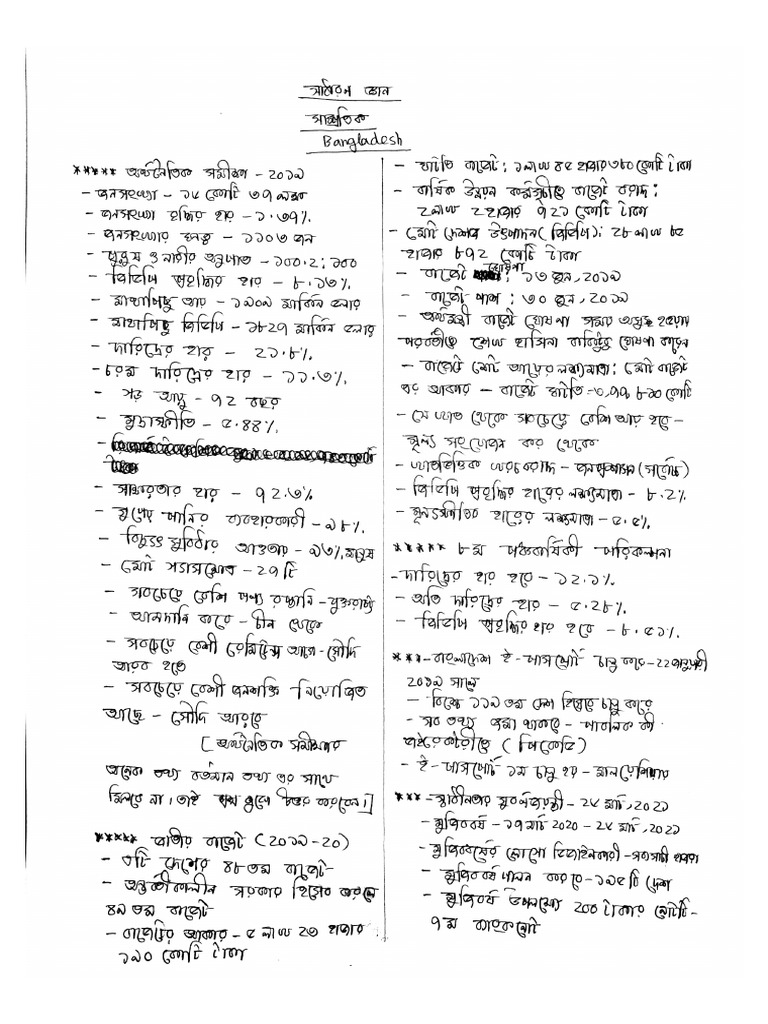 সাধারণ জ্ঞান
সাম্প্রতিক
Bangladesh
***** অর্থনৈতিক সমীক্ষা - ২০১৯
- জনসংখ্যা - ১৬ কোটি ৩৭ লক্ষ
- জনসংখ্যা বৃদ্ধির হার - ১.৩৭%
- জনসংখ্যার ঘনত্ব - ১১০৩ জন
- পুরুষ ও নারীর অনুপাত - ১০০.২: ১০০
- জিডিপি প্রবৃদ্ধির হার - ৮.১৩%
- মাথাপিছু আয় - ১৯০৯ মার্কিন ডলার
- মাথাপিছু জিডিপি - ১৮২৭ মার্কিন ডলার
- দারিদ্রের হার - ২১.৮%
- চরম দারিদ্রের হার - ১১.৩%
- গড় আয়ু - ৭২ বছর
- মুদ্রাস্ফীতি - ৫.৪৪%
- সাক্ষরতার হার - ৭২.৩%
- সুপেয় পানির ব্যবহারকারী - ৯৮%
- বিদ্যুৎ সুবিধার আওতায় - ৯৩% মানুষ
- মোট গ্যাসক্ষেত্র - ২৭ টি
- সবচেয়ে বেশি পণ্য রপ্তানি - যুক্তরাষ্ট্য
- আমদানি করে - চীন থেকে
- সবচেয়ে বেশী রেমিটেন্স আসে - সৌদি
আরব হতে
- সবচেয়ে বেশী জনশক্তি নিয়োজিত
আছে - সৌদি আরবে
[ অর্থনৈতিক সমীক্ষার
অনেক তথ্য বর্তমান তথ্য এর সাথে
মিলবে না, তাই প্রশ্ন বুঝে উত্তর করবেন।]
***** জাতীয় বাজেট (২০১৯-২০)
- এটি দেশের ৪৮ তম বাজেট
- অন্তর্বর্তীকালীন সরকার হিসেব করলে
৪৯ তম বাজেট
- বাজেটের আকার - ৫ লাখ ২৩ হাজার
১৯০ কোটি টাকা
- ঘাটতি বাজেট : ১ লাখ ৪৫ হাজার ৩৮০ কোটি টাকা
- বার্ষিক উন্নয়ন কর্মসূচীতে বাজেট বরাদ্দ :
২ লাখ ২ হাজার ৭২১ কোটি টাকা
- মোট দেশজ উৎপাদন (জিডিপি): ২৮ লাখ ৮৫
হাজার ৮৭২ কোটি টাকা
- বাজেট ঘোষণা : ১৩ জুন, ২০১৯
- বাজেট পাশ : ৩০ জুন, ২০১৯
- অর্থমন্ত্রী বাজেট ঘোষণা সময় অসুস্থ হওয়ায়
পরবর্তীতে শেখ হাসিনা বাকিটুকু ঘোষণা করেন
- বাজেটে মোট আয়ের লক্ষ্যমাত্রা: মোট বাজেট
এর আকার - বাজেট ঘাটতি = ৩,৭৭,৮১০ কোটি
- যে খাত থেকে সবচেয়ে বেশি আয় হবে -
মূল্য সংযোজন কর থেকে
- খাতভিত্তিক ব্যয় বরাদ্দ - জনপ্রশাসন (সর্বোচ্চ)
- জিডিপি প্রবৃদ্ধি হারের লক্ষ্যমাত্রা - ৮.২%
- মূল্যস্ফীতির হারের লক্ষ্যমাত্রা - ৫.৫%
***** ৮ম পঞ্চবার্ষিকী পরিকল্পনা
- দারিদ্রের হার হবে - ১২.১%
- অতি দারিদ্রের হার - ৫.২৮%
- জিডিপি প্রবৃদ্ধির হার হবে - ৮.৫১%
*** - বাংলাদেশ ই-পাসপোর্ট চালু করে - ২২ জানুয়ারী
২০১৯ সালে
- বিশ্বে ১১৯ তম দেশ হিসেবে চালু করে
- সব তথ্য জমা থাকবে - পাবলিক কী
ডাইরেক্টরীতে (পিকেডি)
- ই-পাসপোর্ট ১ম চালু হয় - মালয়েশিয়ায়
*** - স্বাধীনতার সুবর্ণজয়ন্তী - ২৬ মার্চ, ২০২১
- মুজিববর্ষ - ১৭ মার্চ ২০২০ - ২৬ মার্চ, ২০২১
- মুজিববর্ষের লোগো ডিজাইনকারী - সব্যসাচী হাজরা
- মুজিববর্ষ পালন করবে - ১৯৫ টি দেশ
- মুজিববর্ষ উপলক্ষ্যে ২০০ টাকার নোটটি -
৭ম ব্যাংকনোট